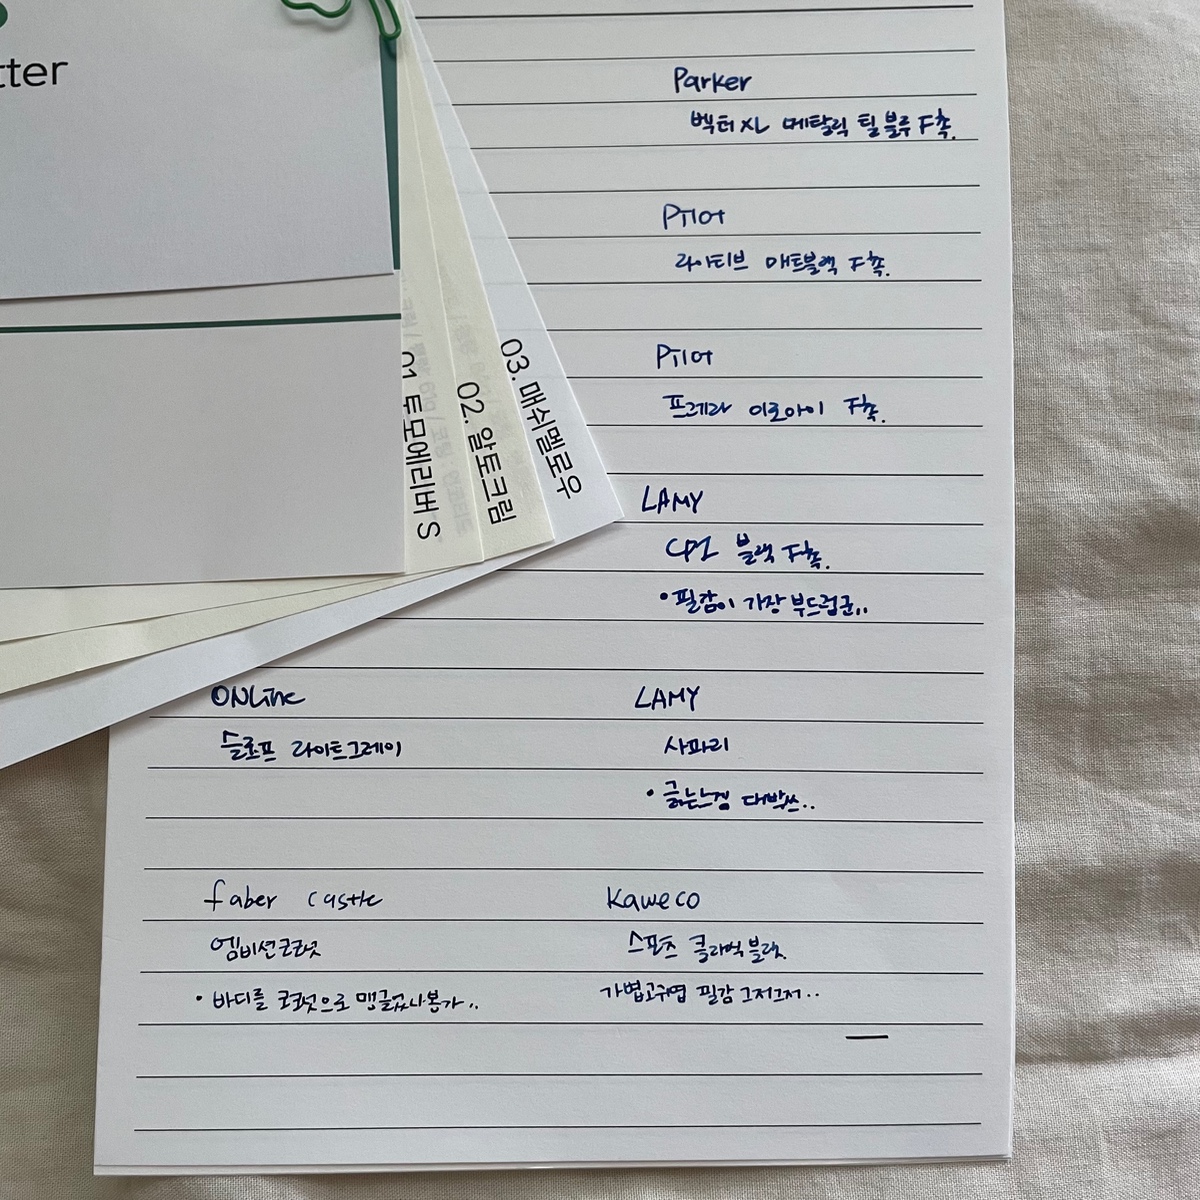 tter
01. 토모에리버 S
02. 알토크림
03. 매쉬멜로우
Parker
벡터 XL 메탈릭 틸 블루 F촉.
Pilot
라이티브 매트블랙 F촉.
Pilot
프레라 이로아이 F촉.
LAMY
CP1 블랙 F촉.
• 필감이 가장 부드럽군..
ONLine
슬로프 라이트그레이
LAMY
사파리
• 굵는느낌 대박쓰..
faber castle
엠비션코코넛
• 바디를 코코넛으로 맹글었나봉가..
Kaweco
스포츠 클래식 블랙.
가볍고귀엽 필감 그저그저..